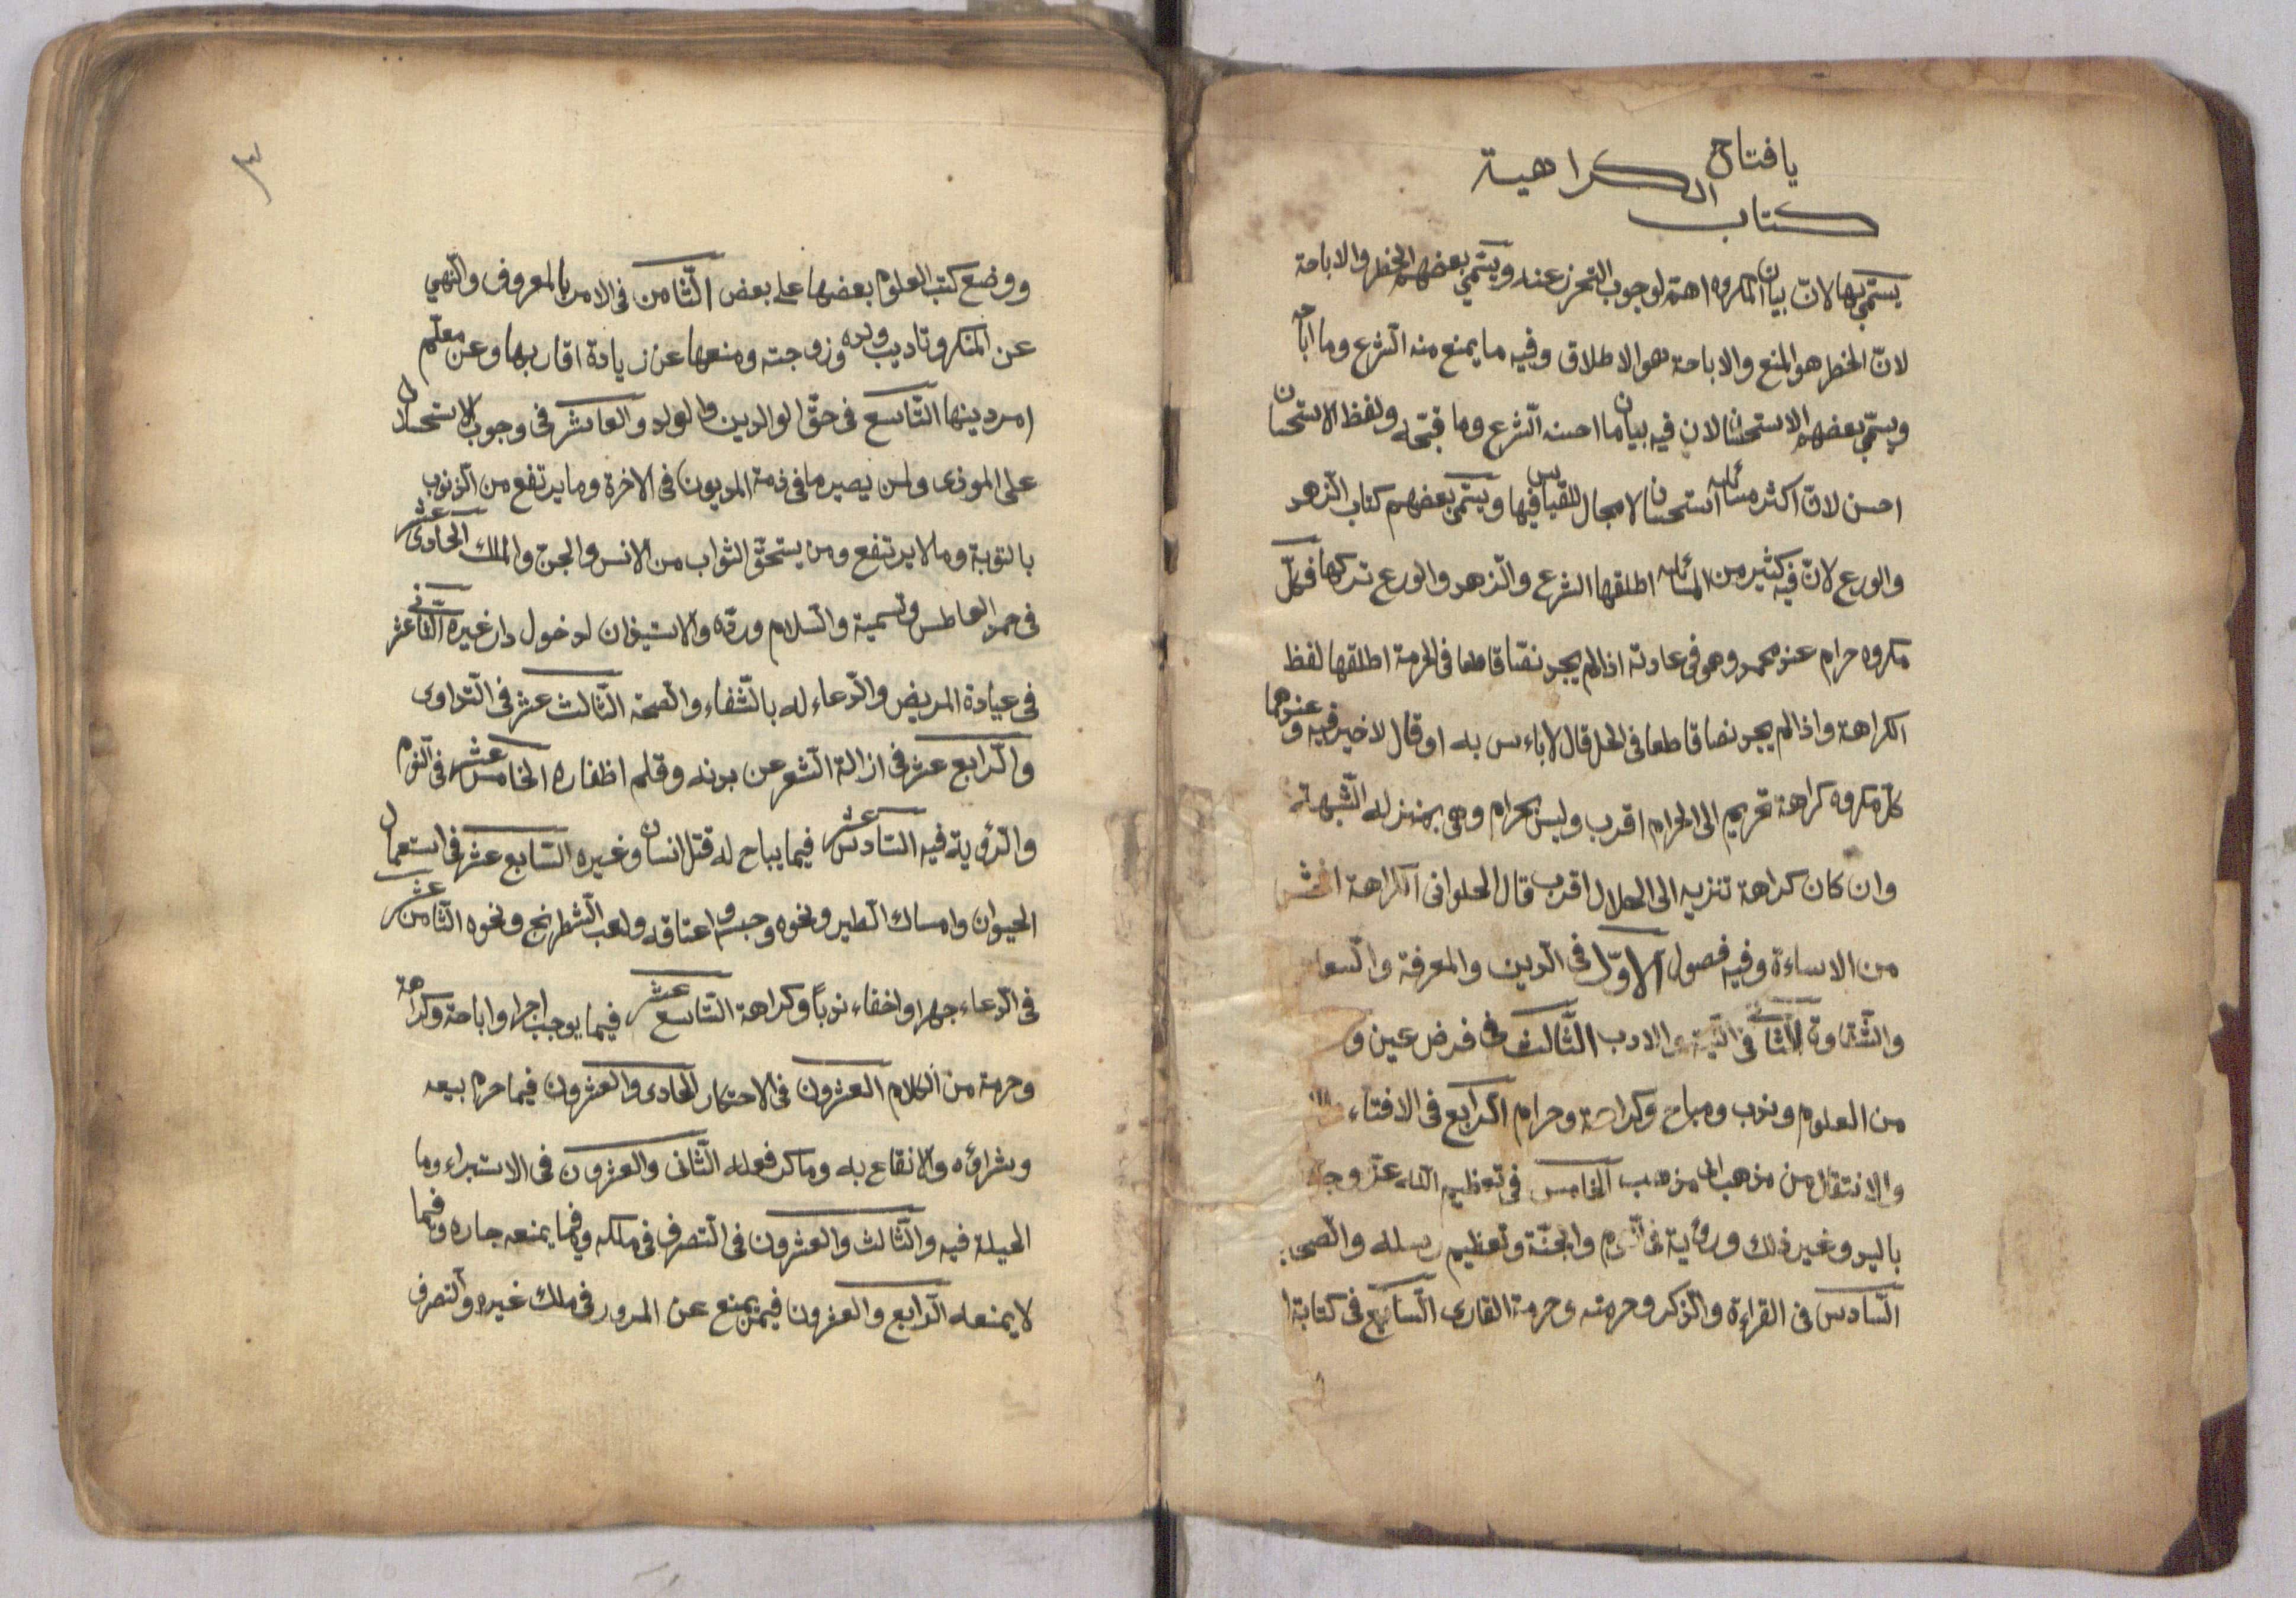 يا فتاح
كتاب الكراهية
يسمى بها لانّ بيان المكروه اهمّ لوجوب التحرز عنه ويسمّي بعضهم الحظر والاباحة
لانّ الحظر هو المنع والاباحة هو الاطلاق وفيه ما يمنع منه الشرع وما اباحه
ويسمّى بعضهم الاستحسان لان فيه بيان ما احسنه الشّرع وما قبّحه ولفظ الاستحسان
احسن لانّ اكثر مسائله استحسان لا مجال للقياس فيها ويسمّى بعضهم كتاب الزّهد
والورع لانّ فيه كثير من المسائل اطلقها الشرع والزّهد والورع تركها فكلّ
مكروه حرام عند محمد وهو في عادته اذا لم يجد نصّا قاطعا في الحرمة اطلقها لفظ
الكراهة واذا لم يجد نصا قاطعا في الحل قال لا باءس به او قال لا خير فيه وعندهما
كلّ مكروه كراهة تحريم الى الحرام اقرب وليس بحرام وهي بمنزلة الشّبهة
وان كان كراهة تنزيه الى الحلال اقرب قال الحلوانى الكراهة افحش
من الاساءة وفيه فصول الاوّل في الدين والمعرفة والسعا
والشّقاوة الثّانى في النّية والادب الثّالث في فرض عين و
من العلوم وندب ومباح وكراهة وحرام الرّابع في الافتاء
والانتقال من مذهب الى مذهب الخامس في تعظيم الله عزّ وجلّ
باليد وغير ذلك ورؤية في النّوم والجنّة وتعظيم رسله والصحا
السّادس في القراءة والذكر وحرمته وحرمة القارى السّابع في كتابة ا
٣
ووضع كتب العلوم بعضها على بعض الثّامن في الامر بالمعروف والنّهي
عن المنكر وتاديب ولده وزوجته ومنعها عن زيادة اقاربها وعن معلّم
امر دينها التّاسع في حقّ الوالدين والولد والعاشر في وجوب الاستحلال
على الموذى ولمن يصير ما في ذمة المديون في الاخرة وما يرتفع من الذنوب
بالتوبة وما لا يرتفع ومن يستحقّ الثواب من الانس والجن والملك الحادى عشر
في حمد العاطس وتسمية والسّلام وردّه والاستيذان لدخول دار غيره الثّانى عشر
في عيادة المريض والدّعاء له بالشّفاء والصّحة الثّالث عشر في التّداوى
والرّابع عشر في ازالة الشّعر عن بدنه وقلم اظفاره الخامس عشر في النّوم
والرّؤية فيه السّادس عشر فيما يباح له قتل انسان وغيره السّابع عشر في استعمال
الحيوان وامساك الطّير ونحوه وحبسه واعتاقه ولعب الشّطرنج ونحوه الثّامن عشر
في الدّعاء جهرا واخفاء ندباً وكراهة التّاسع عشر فيما يوجب اجرا واباحة وكراهة
وحرمة من الكلام العشرون في الاحتكار الحادى والعشرون فيما حرم بيعه
وشراؤه والانتفاع به وما كره فعله الثّانى والعشرون في الاستبراء وما
الحيلة فيه والثّالث والعشرون في التّصرف في ملكه وفيما يمنعه جاره وفيما
لا يمنعه الرّابع والعشرون فيمن يمنع عن المرور في ملك غيره والتصرف